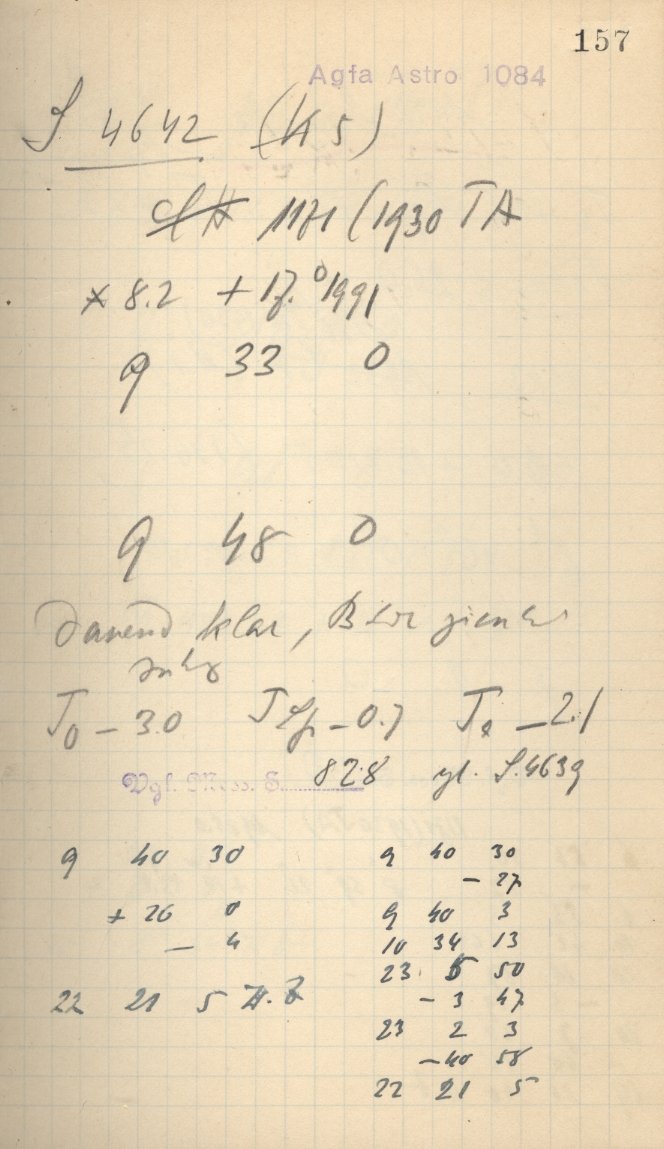 157
Agfa Astro 1084
S 4642 (K 5)
1171 (1930 TA
* 8.2 + 17.°1991
9 33 0
9 48 0
Dauernd klar,
T0 - 3.0 TSp - 0.7 - 2.1
Vgl. Mess. S. 828 vgl. S. 4639
9 40 30
+ 26 0
- 4
22 21 5
9 40 30
- 27
9 40 3
10 34 13
23 5 50
- 3 47
23 2 3
- 40 58
22 21 5